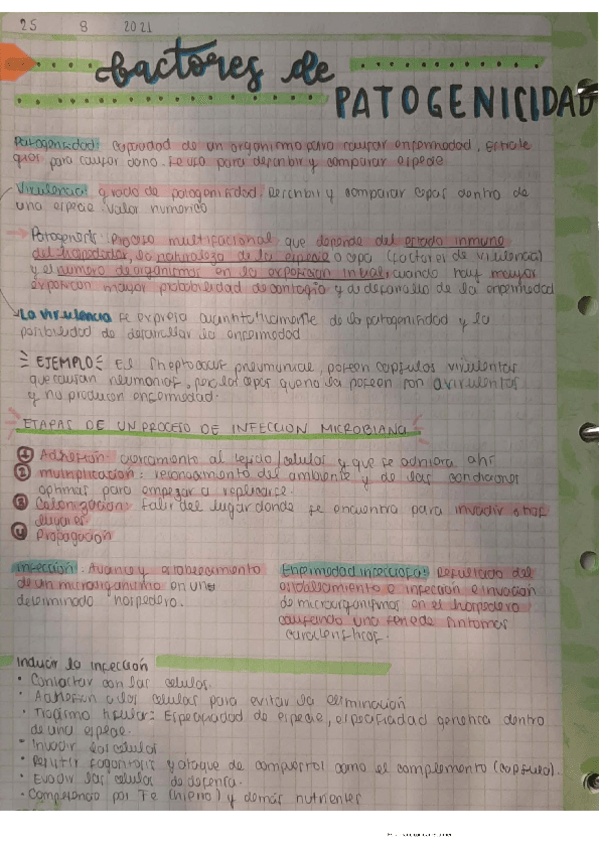 25 8 2021
factores de
PATOGENICIDAD
Patogenicidad: capacidad de un organismo para causar enfermedad,
para causar daño. Se usa para describir y comparar especie
Virulencia: grado de patogenicidad. Describir y comparar cepas dentro de
una especie. Valor numerico
Patogenesis: Proceso multifacional que depende del estado inmune
del hospedador, la naturaleza de la especie o cepa (factores de virulencia)
y el numero de organismos en la exposicion inicial, cuando hay mayor
exposicion mayor probabilidad de contagio y de desarrollo de la enfermedad
La virulencia se expresa cuantitativamente de la patogenicidad y la
posibilidad de desarrollar la enfermedad
EJEMPLO El Streptococus pneumoniae, poseen capsulas virulentas
que causan neumonias, pero las cepas que no la poseen son avirulentas
y no producen enfermedad.
ETAPAS DE UN PROCESO DE INFECCION MICROBIANA
1 Adhesion: acercamiento al tejido/celulas y que se adhiera ahi
2 Multiplicacion: reconocimiento del ambiente y de las condiciones
optimas para empezar a replicarse.
3 Colonizacion: salir del lugar donde se encuentra para invadir otros
lugares
4 Propagacion
Infeccion: Avance y establecimiento
de un microorganismo en un
determinado hospedero.
Enfermedad infecciosa: Resultado del
establecimiento o infeccion e invacion
de microorganismos en el hospedero
causando una serie de sintomas
caracteristicos.
Inducir la infección
• Contactar con las celulas.
• Adhesion a las celulas para evitar la eliminación
• Tropismo tisular: Especificidad de especie, especificidad genetica dentro
de una especie.
• Invadir las celulas
• Resistir fagocitosis y ataque de compuestos como el complemento (capsula).
• Evadir las celulas de defensa.
• Competencia por Fe (hierro) y demás nutrientes